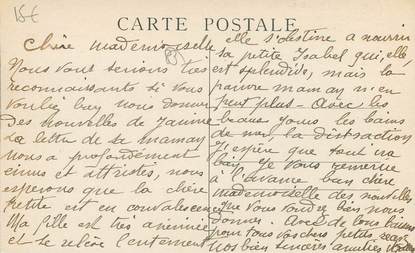 15€
CARTE POSTALE
Chère mademoiselle
Nous vous serions très
reconnaissants si vous
voulez bien nous donner
des nouvelles de Jaimie
La lettre de sa maman
nous a profondément
émus et attristés, nous
esperons que la chère
petite est en convalescence
Ma fille est très anémiée
et se relève lentement
elle s'obstine a nourrir
sa petite Isabel qui, elle,
est splendide, mais la
pauvre maman n'en
peut plus - Avec les
beaux jours les bains
de mer, la distraction
J'espère que tout ira
bien. Je vous remercie
à l'avance bien chère
mademoiselle des nouvelles
que vous voudrez bien nous
donner. Avec de bons baisers
pour tous vos chers petits, recevez
nos bien sincères amitiés